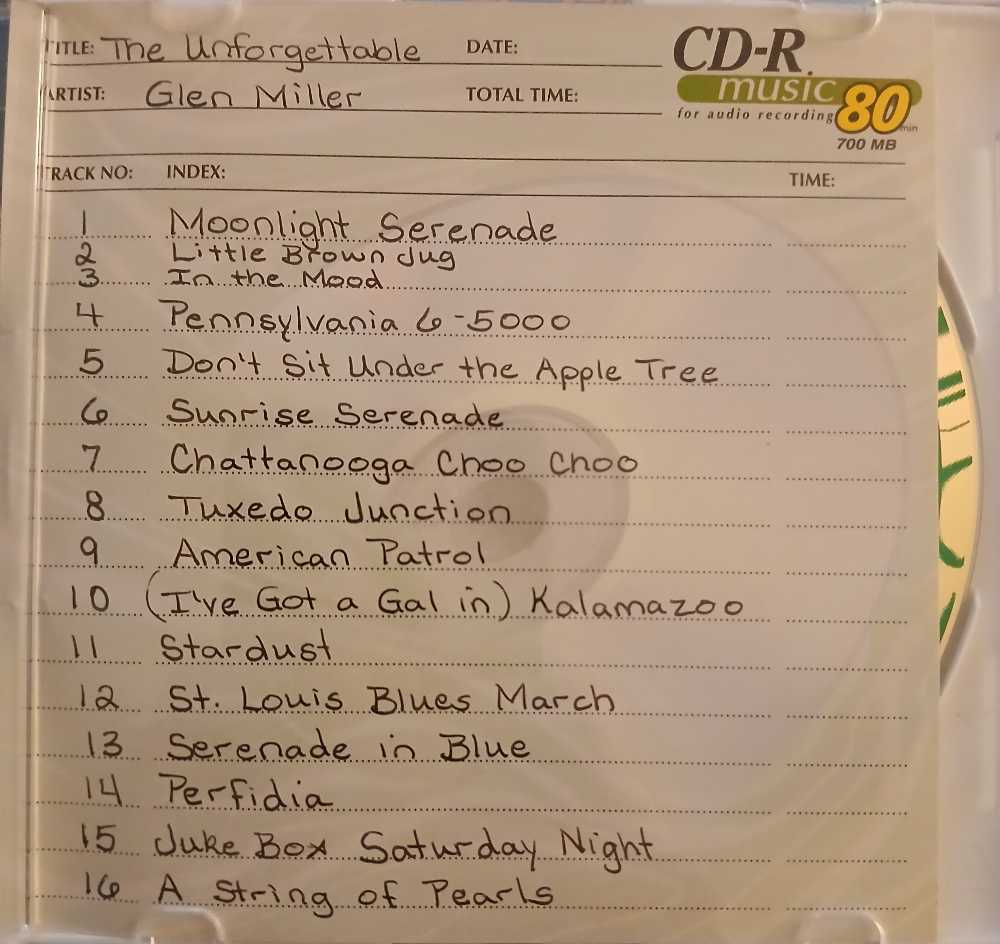 TITLE: The Unforgettable DATE:
ARTIST: Glen Miller TOTAL TIME:
CD-R
music 80 min
for audio recording
700 MB
TRACK NO: INDEX: TIME:
1 Moonlight Serenade
2 Little Brown Jug
3 In the Mood
4 Pennsylvania 6-5000
5 Don't Sit Under the Apple Tree
6 Sunrise Serenade
7 Chattanooga Choo Choo
8 Tuxedo Junction
9 American Patrol
10 (I've Got a Gal in) Kalamazoo
11 Stardust
12 St. Louis Blues March
13 Serenade in Blue
14 Perfidia
15 Juke Box Saturday Night
16 A String of Pearls